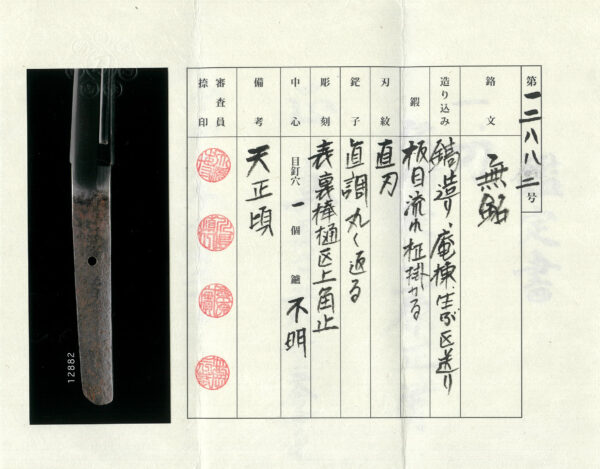 第一二八八二号
銘文 無銘
造り込み 鎬造り、庵棟、生ぶ区送り
鍛 板目流れ柾掛かる
刃紋 直刃
鋩子 直調丸く返る
彫刻 表裏棒樋区上角止
中心 目釘穴 一個 鑢 不明
備考 天正頃
審査員捺印
12882